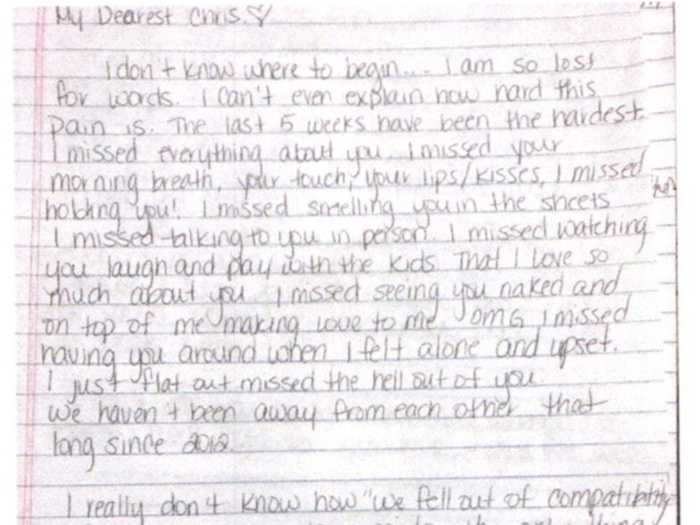 My Dearest Chris ♡
I don't know where to begin... I am so lost
for words. I can't even explain how hard this
pain is. The last 5 weeks have been the hardest.
I missed everything about you. I missed your
morning breath, your touch, your lips/kisses, I missed
holding you! I missed smelling you in the sheets
I missed talking to you in person. I missed watching
you laugh and play with the kids That I love so
much about you I missed seeing you naked and
on top of me making love to me OMG I missed
having you around when I felt alone and upset.
I just flat out missed the hell out of you
We haven't been away from each other that
long since 2012.
I really don't know how "we fell out of compatibility